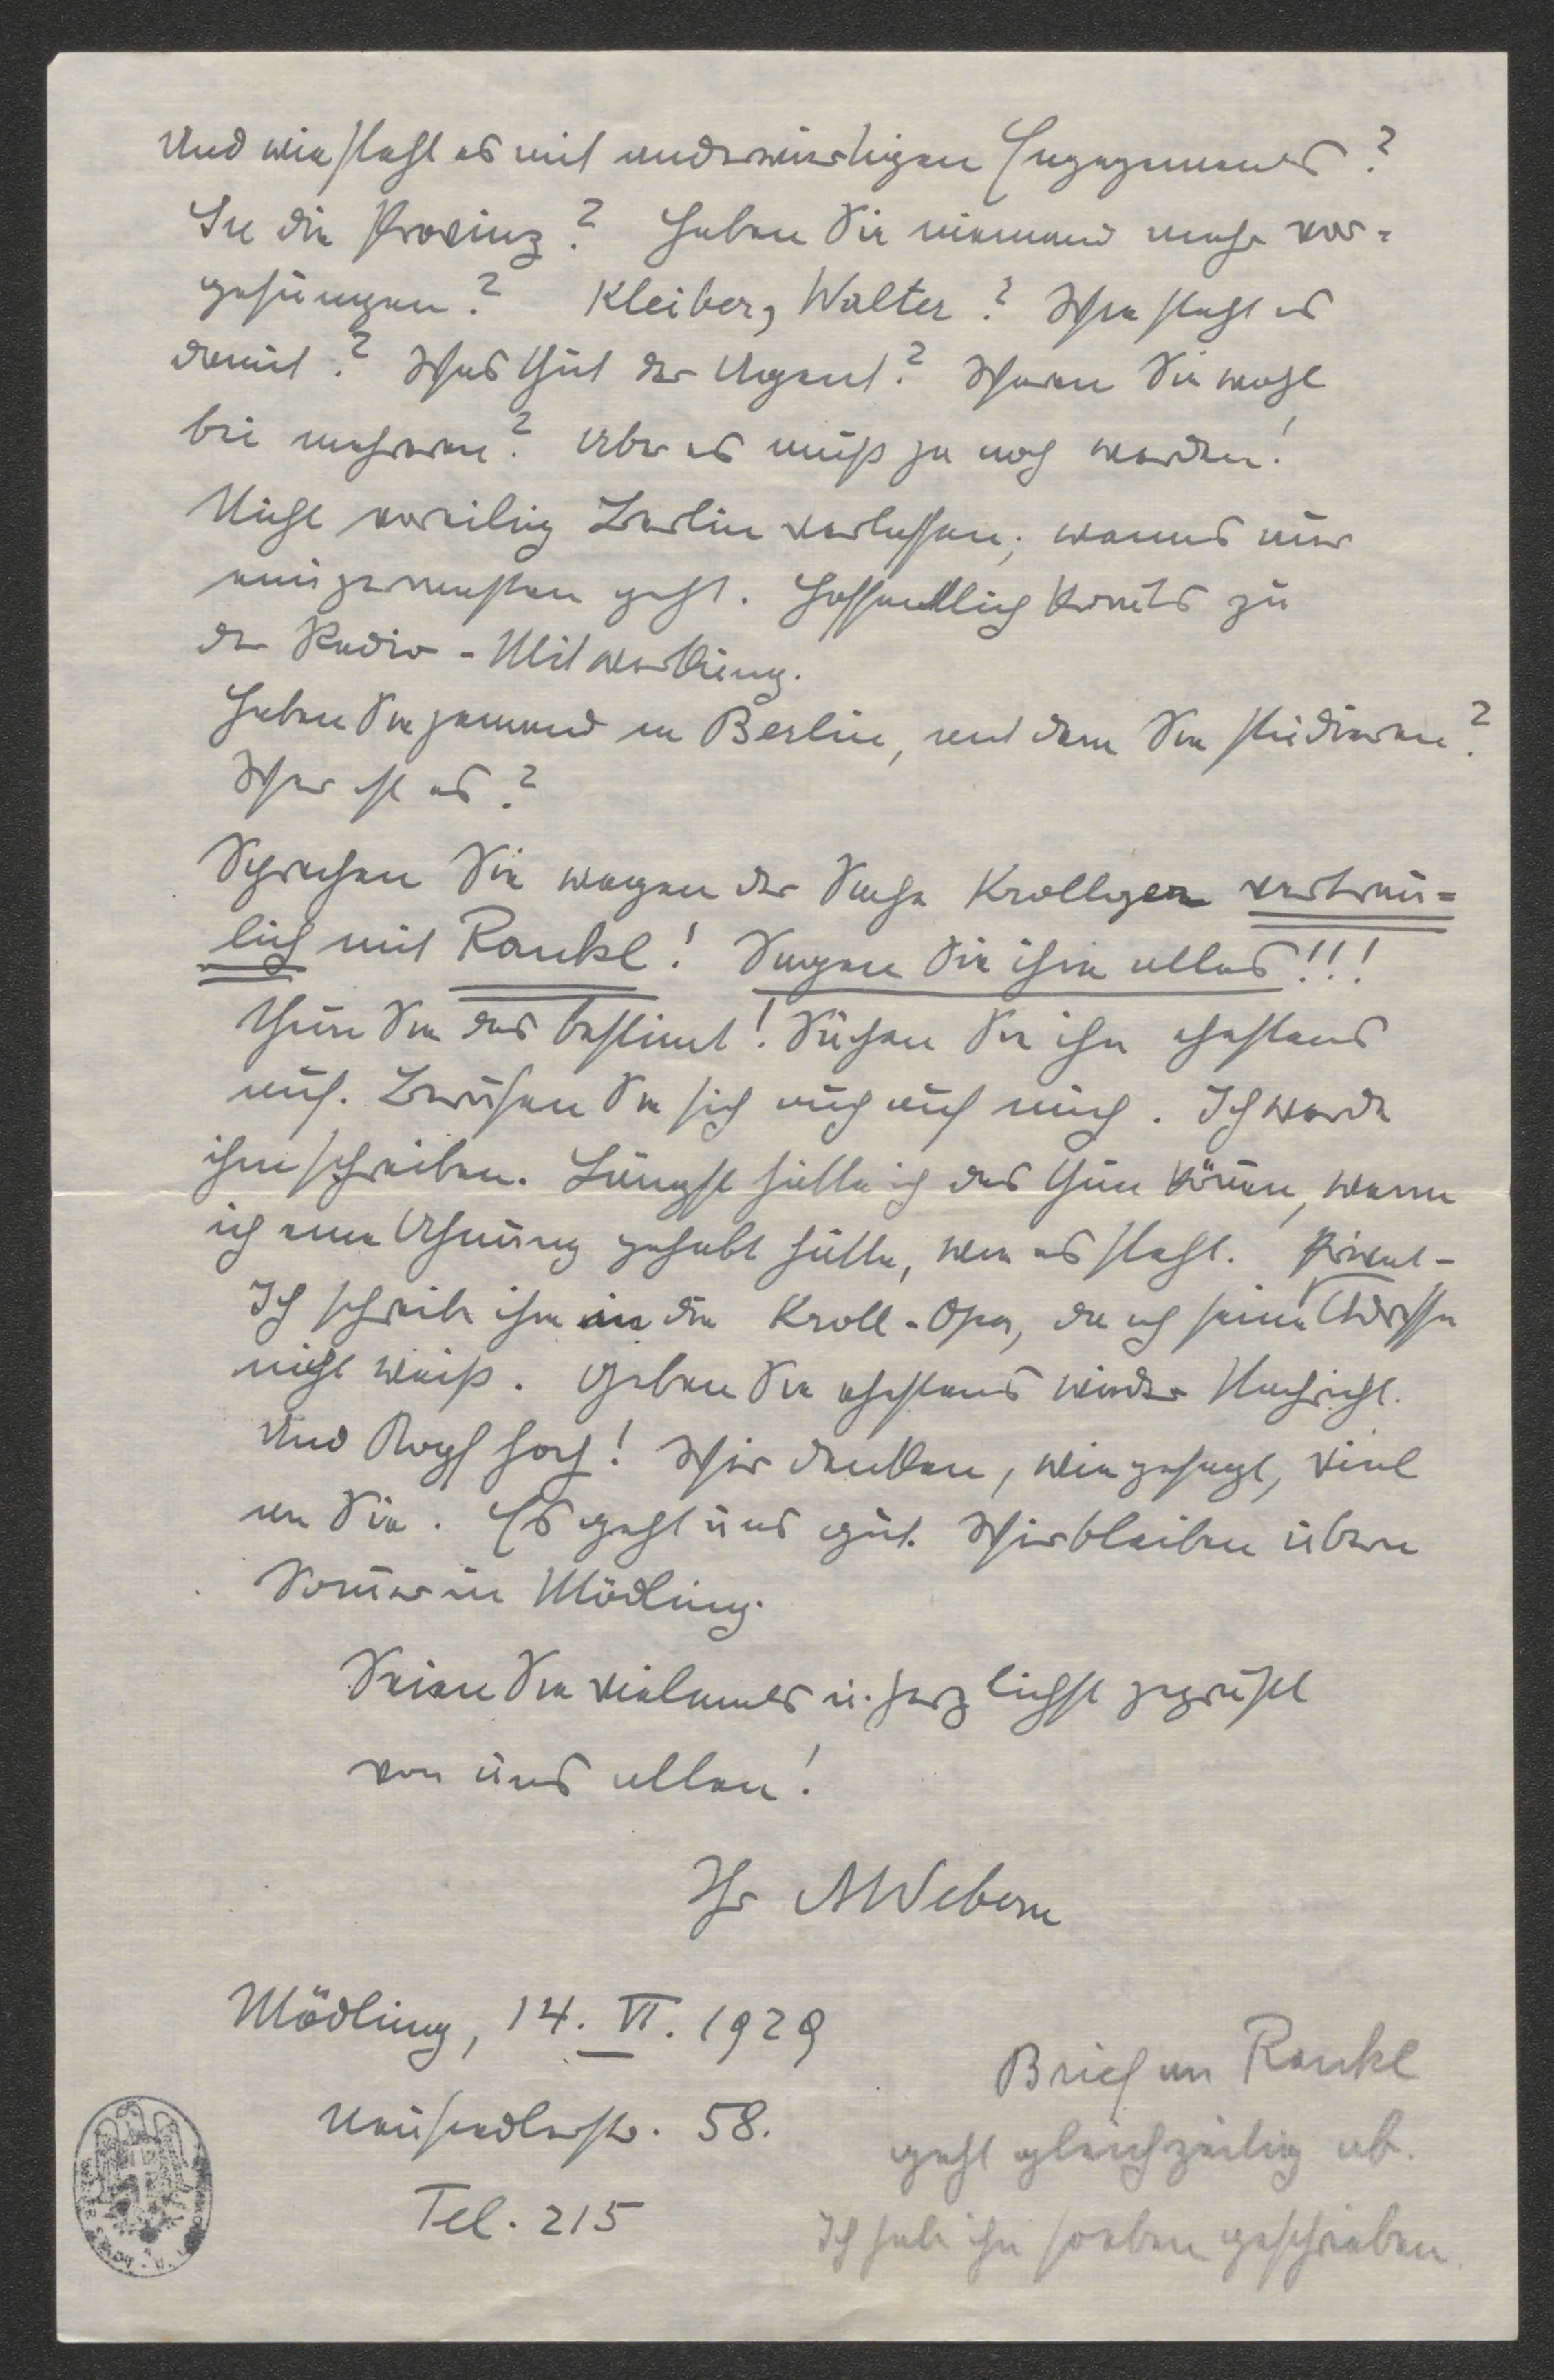 Und wie steht es mit anderwärtigen Engagements?
In die Provinz? Haben Sie niemand mehr vor=
gesungen? Kleiber, Walter? Wie steht es
damit? Was thut der Agent? Waren Sie wohl
bei mehreren? Aber es muß ja noch werden!
Nicht voreilig Berlin verlassen; wenns nur
einigermaßen geht. Hoffentlich kom̄ts zu
der Radio-Mitwerkung.
Haben Sie jemand in Berlin, mit dem Sie studieren?
Wer ist es?
Sprechen Sie wegen der Sache Kroll gern vertrau=
lich mit Rankl! Sagen Sie ihm alles!!!
Thun Sie das bestim̄t! Suchen Sie ihn ehestens
auf. Berufen Sie sich auch auf mich. Ich werde
ihm schreiben. Längst hätte ich das thun kön̄en, wenn
ich eine Ahnung gehabt hätte, wie es steht. Privat-
Ich schreibe ihm in die Kroll-Oper, da ich seine Adresse
nicht weiß. Geben Sie ehestens wieder Nachricht.
Und Kopf hoch! Wir denken, wie gesagt, viel
an Sie. Es geht uns gut. Wir bleiben übern
Som̄er in Mödling.
Seien Sie vielmals u. herzlichst gegrüßt
von uns allen!
Ihr AWebern
Mödling, 14. VI. 1929
Neusiedlerstr. 58.
Tel. 215
Brief an Rankl
geht gleichzeitig ab.
Ich habe ihn soeben geschrieben.